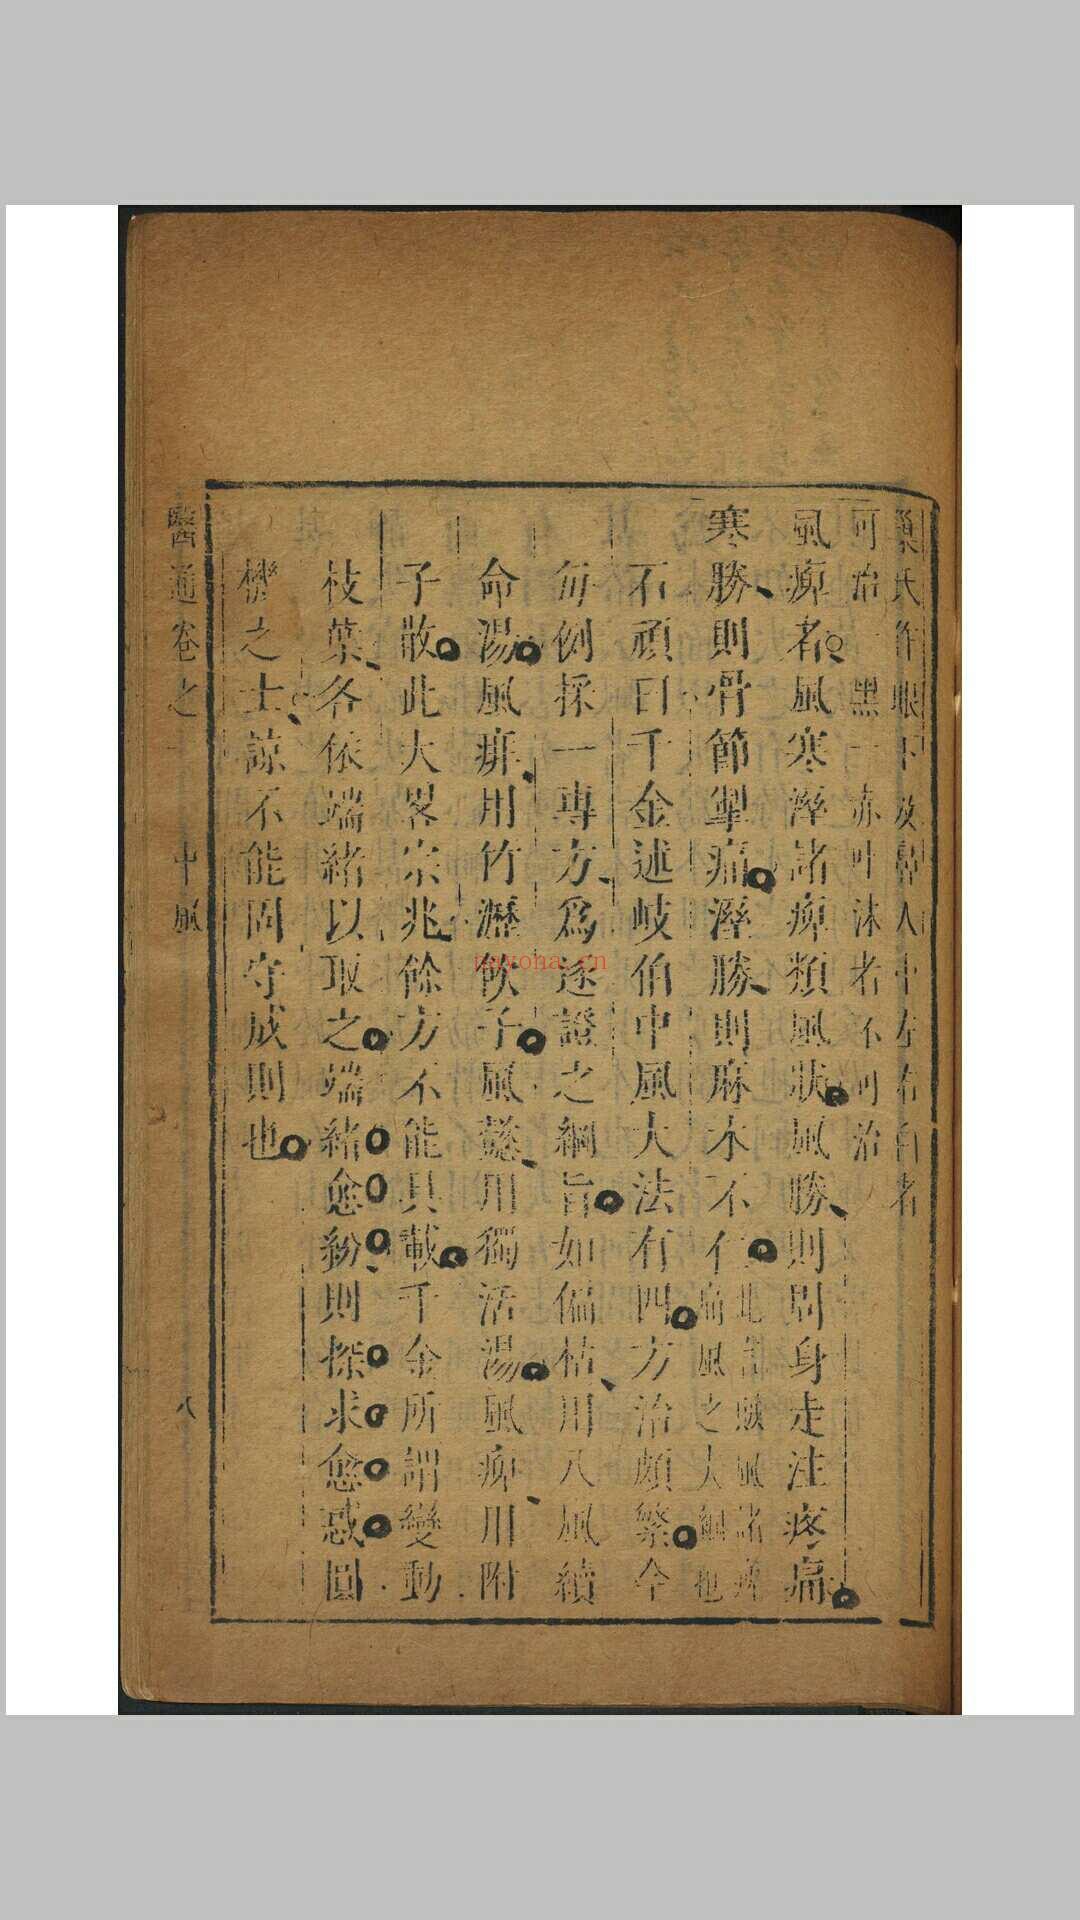 巢氏作眼下及鼻人中左右白者
可治一黑一赤吐沫者不可治
風痺者風寒溼諸痺類風狀風勝則周身走注疼痛
寒勝則骨節攣痛溼勝則麻木不仁此言賊風諸痺
痛風之大綱也
石頑曰千金述岐伯中風大法有四方治頗繁今
每例採一專方為逐證之綱旨如偏枯用八風續
命湯風痱用竹瀝飲子風懿用獨活湯風痺用附
子散此大畧宗兆餘方不能具載千金所謂變動
枝葉各依端緒以取之端緒愈紛則探求愈惑圓
機之士諒不能固守成則也
醫通卷之一 中風 八
nayona.cn